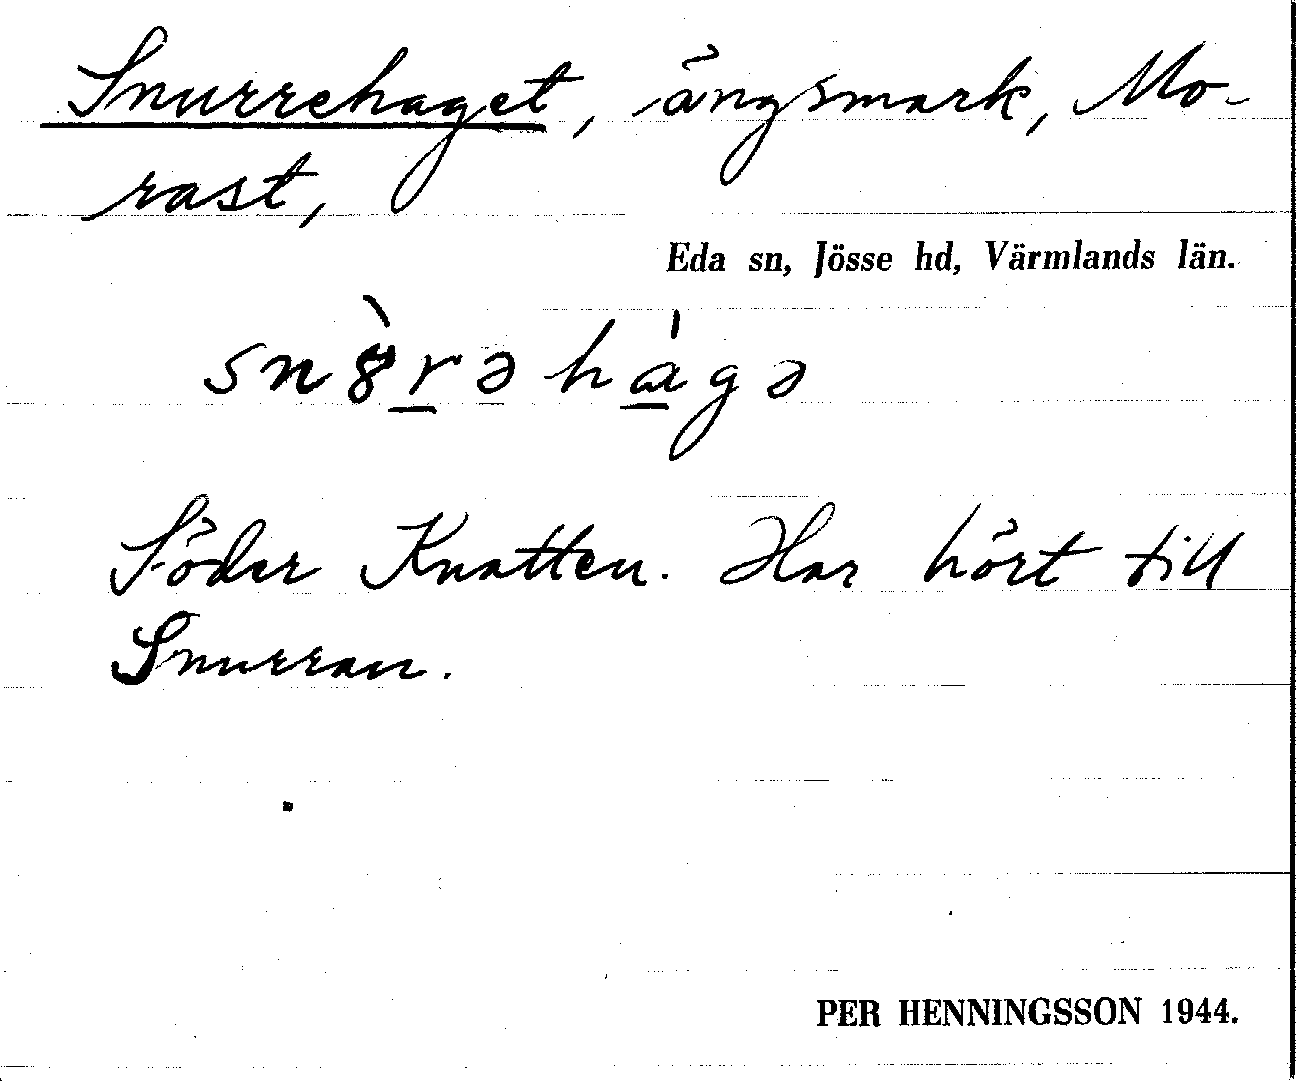 Snurrehaget, ängsmark, Mo-
rast,
Eda sn, Jösse hd, Värmlands län.
sn8̀r̲əhá̲gə
Söder Knatten. Har hört till
Snurran.
PER HENNINGSSON 1944.